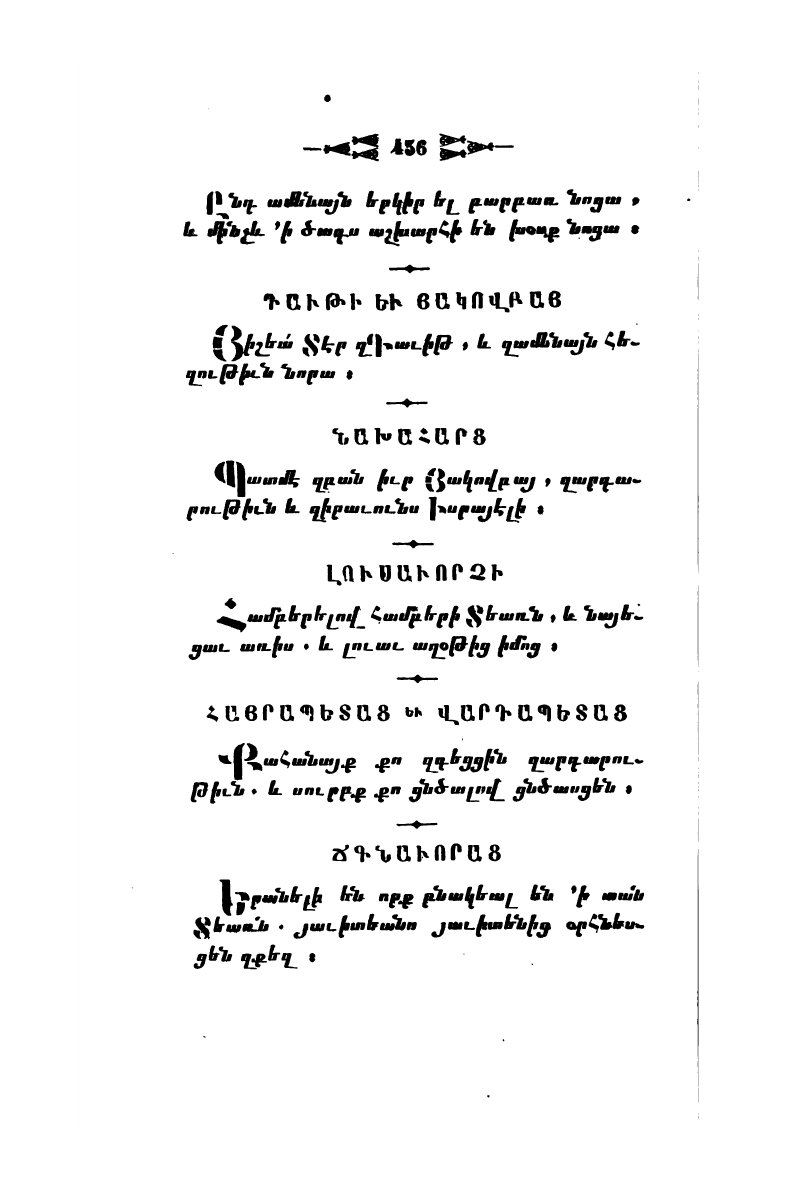 456
Ընդ ամենայն երկիր ել բարբառ նոցա ,
և մինչև ՚ի ծագս աշխարհի են խօսք նոցա ։
ԴԱՒԹԻ ԵՒ ՅԱԿՈՎԲԱՅ
Յիշեա՛ Տէր զԴաւիթ , և զամենայն հե-
զութիւն նորա ։
ՆԱԽԱՀԱՐՑ
Պատմէ զբան իւր Յակովբայ , զարդա-
րութիւն և զիրաւունս Իսրայէլի ։
ԼՈՒՍԱՒՈՐՉԻ
Համբերելով համբերի Տեառն , և նայե-
ցաւ առիս . և լուաւ աղօթից իմոց ։
ՀԱՅՐԱՊԵՏԱՑ ԵՒ ՎԱՐԴԱՊԵՏԱՑ
Քահանայք քո զգեցցին զարդարու-
թիւն . և սուրբք քո ցնծալով ցնծասցեն ։
ՃԳՆԱՒՈՐԱՑ
Երանելի են ոյք բնակեալ են ՚ի տան
Տեառն . յաւիտեանս յաւիտենից օրհնես-
ցեն զքեզ ։